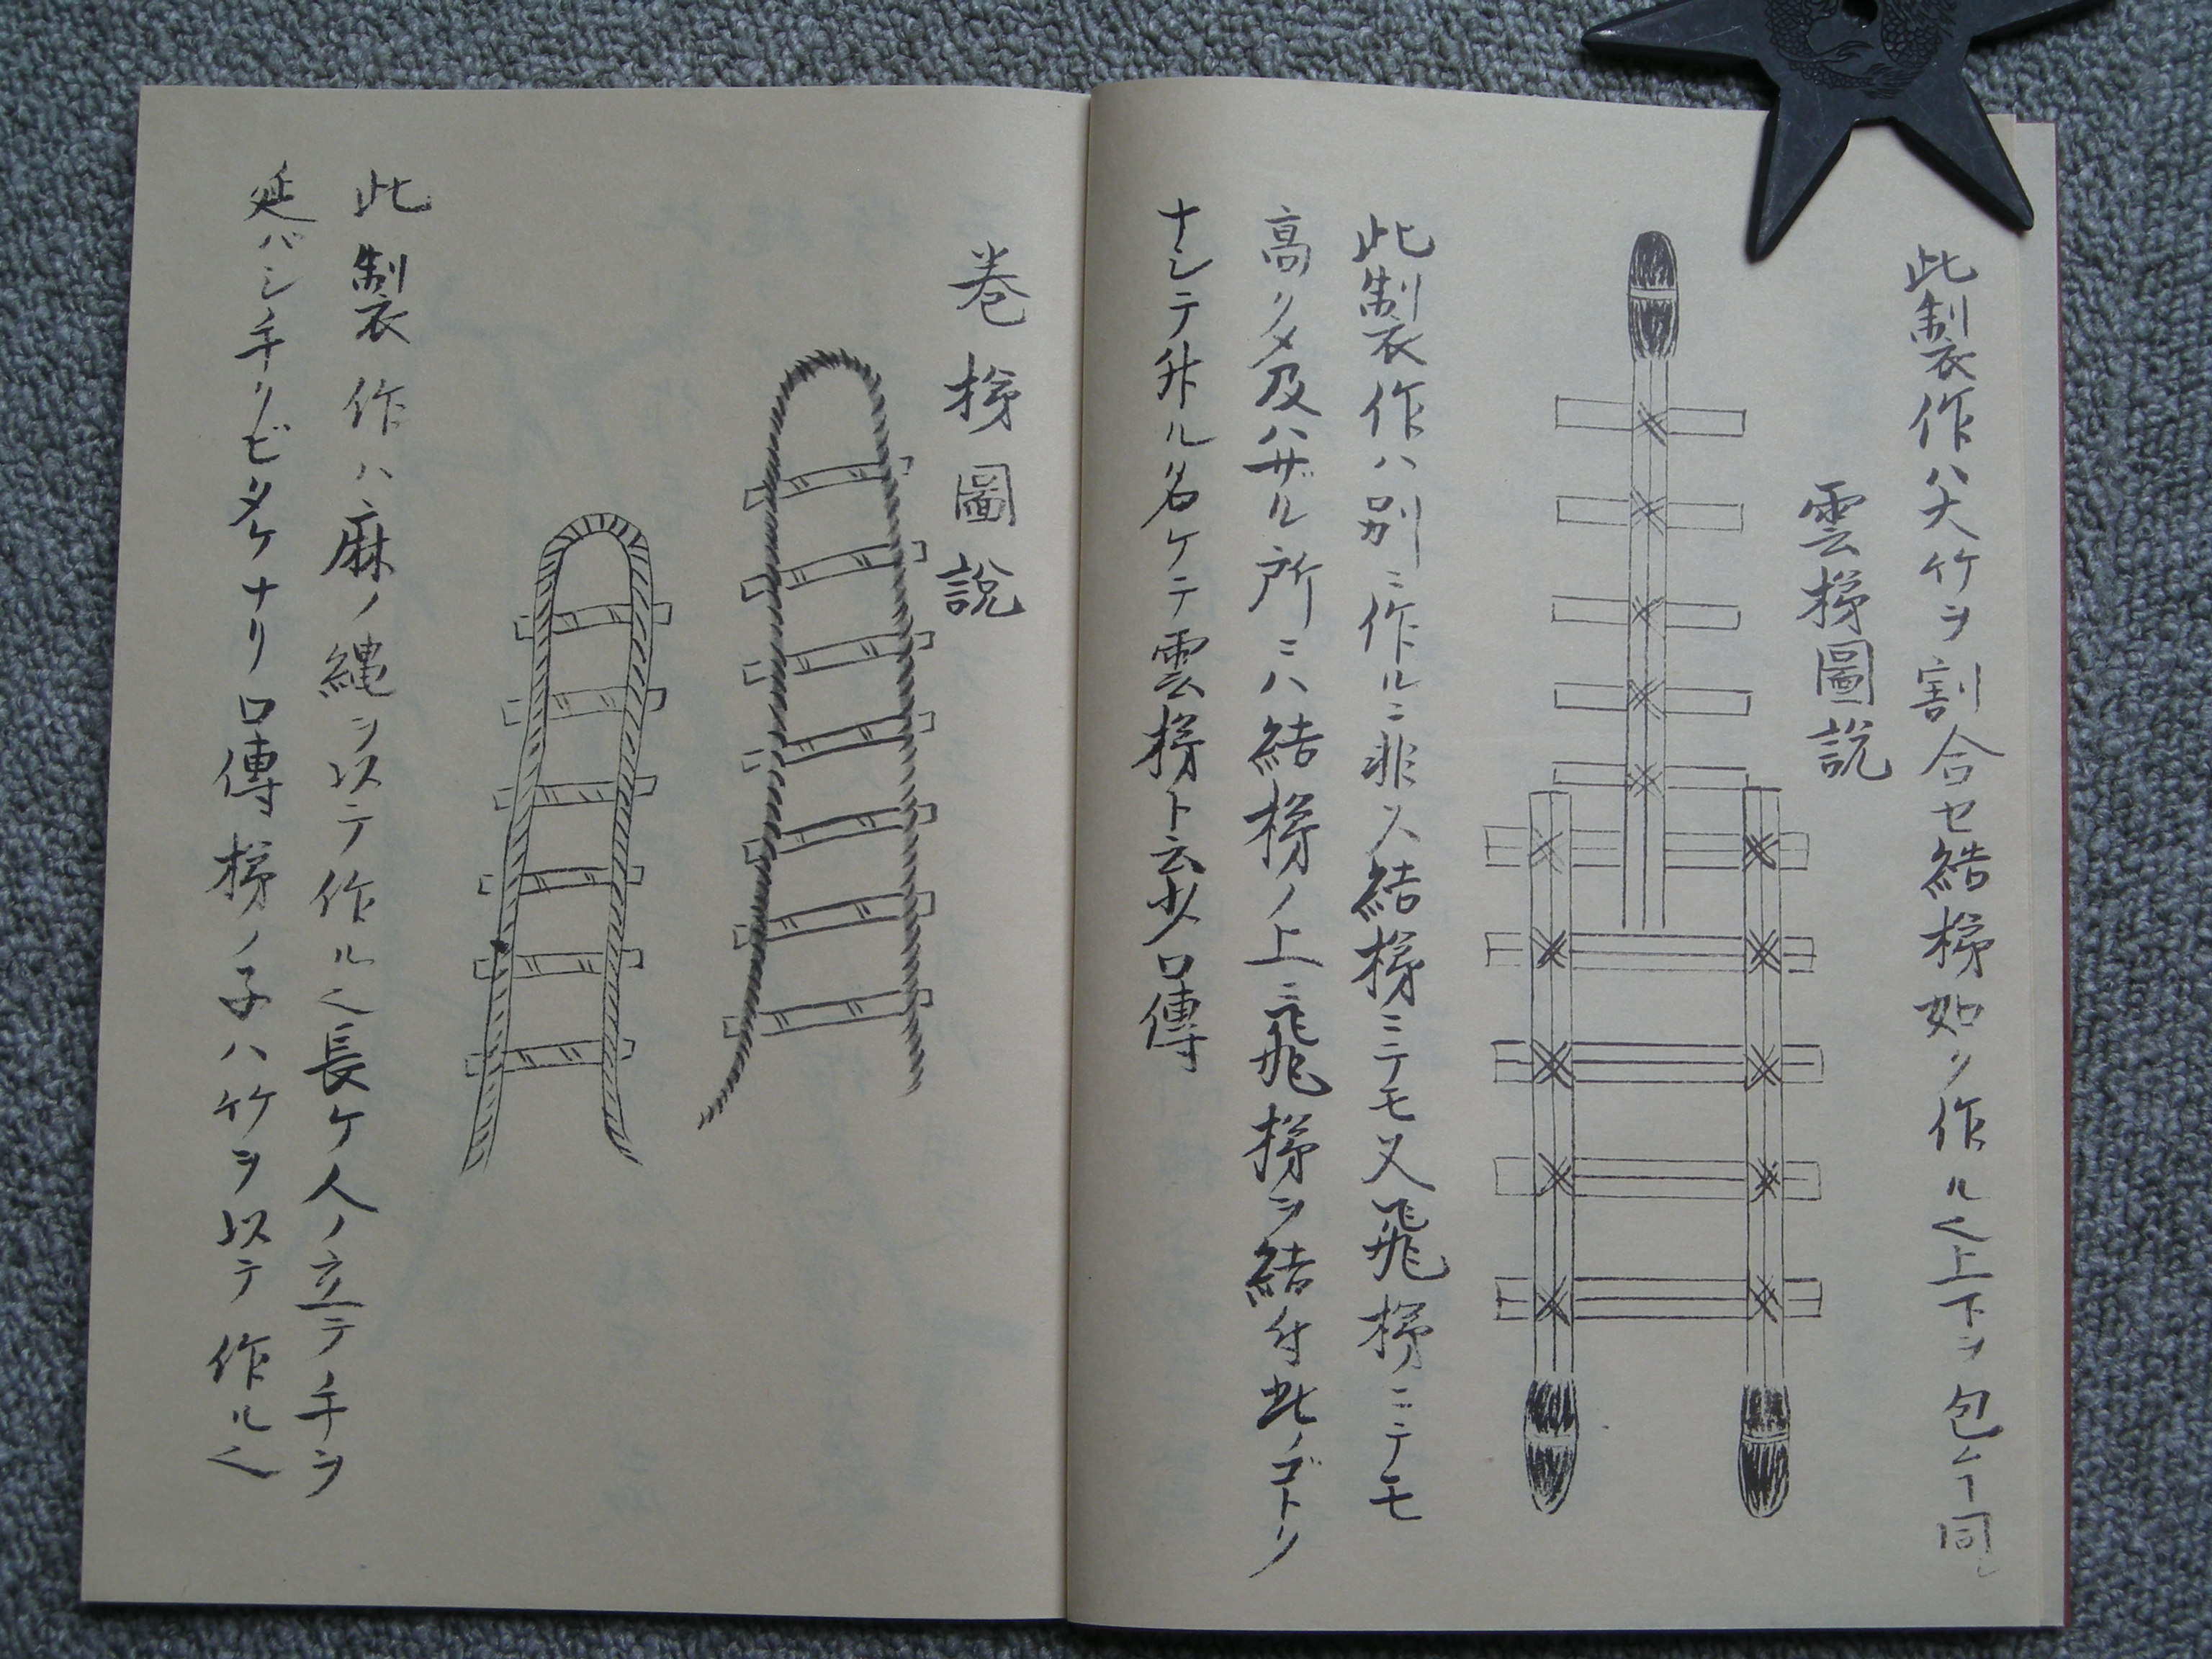 此製作ハ大竹ヲ割合セ結梯如ク作ル也上下ヲ包ム丁同シ
雲梯圖説
此製作ハ別ニ作ルニ非ス結梯ニテモ又飛梯ニテモ
高クメ及ハザル所ニハ結梯ノ上ニ飛梯ヲ結付此ノゴトク
ナシテ舛ル名ケテ雲梯ト云也口傳
巻梯圖説
此製作ハ麻ノ縄ヲ以テ作ル也長ケ人ノ立テ手ヲ
延バシ手クビタケナリ口傳梯ノ子ハ竹ヲ以テ作ル也